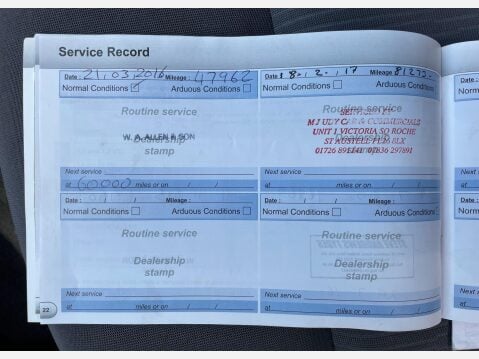 Service Record
Date : 21.03.2016 Mileage : 47962
Normal Conditions Arduous Conditions
Routine service
W. A. ALLEN & SON
Dealership
stamp
Next service
at 60000 miles or on / /
Date : 8 . 2 . 17 Mileage
Normal Conditions Arduous Conditions
Routine service
M J UDY CAR & COMMERCIALS
UNIT 1 VICTORIA SQ ROCHE
ST AUSTELL PL26 8LX
Dealership
stamp
Next service
at miles or on / /
Date : / / Mileage :
Normal Conditions Arduous Conditions
Routine service
Dealership
stamp
Next service
at miles or on / /
Date : / / Mileage :
Normal Conditions Arduous Conditions
Routine service
Dealership
stamp
Next service
at miles or on / /
22
Date :
Norm
Next
at
Date :
Norm
Next
at